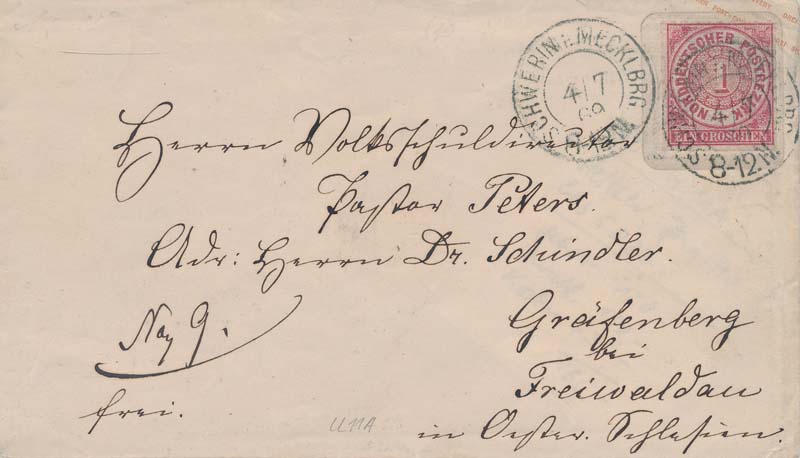 SCHWERIN i. MECKLBRG
4/7
69
8-12 N.
NORDDEUTSCHER POSTBEZIRK
1
EIN GROSCHEN
8-12 N.
Herrn Volksschuldirector
Pastor Peters.
Adr: Herrn Dr. Schindler.
No 9.
Gräfenberg
bei
Freiwaldau
frei.
U 11A
in Oester. Schlesien.